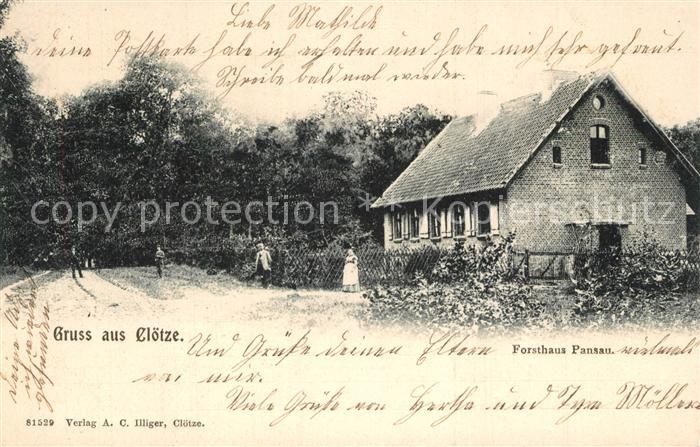 Liebe Mathilde
deine Postkarte habe ich erhalten und habe mich sehr gefreut.
Schreibe bald mal wieder.
copy protection * Kopierschutz
Gruss aus Clötze.
Forsthaus Pansau.
Und Grüße deinen Eltern vielmals
von mir.
Viele Grüße von Hertha und Möller
81529 Verlag A. C. Illiger, Clötze.